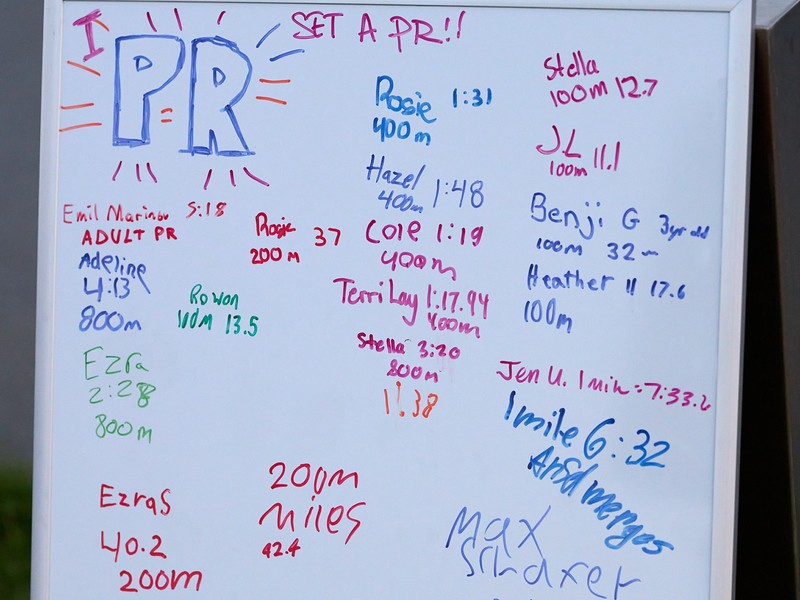 I PR = SET A PR!!
Emil Marinov 5:18
ADULT PR
Adeline
4:13
800m
Ezra
2:28
800m
EzraS
40.2
200m
Rosie 37
200m
Rowan
100m 13.5
200m
Miles
42.4
Rosie 1:31
400m
Hazel 1:48
400m
Cole 1:19
400m
Terri Lay 1:17.94
400m
Stella 3:20
800m
1:38
Stella
100m 12.7
J.L 11.1
100m
Benji G 3yr old
100m 32
Heather 17.6
100m
Jen U. 1 mile = 7:33.2
1 mile 6:32
merges
Max